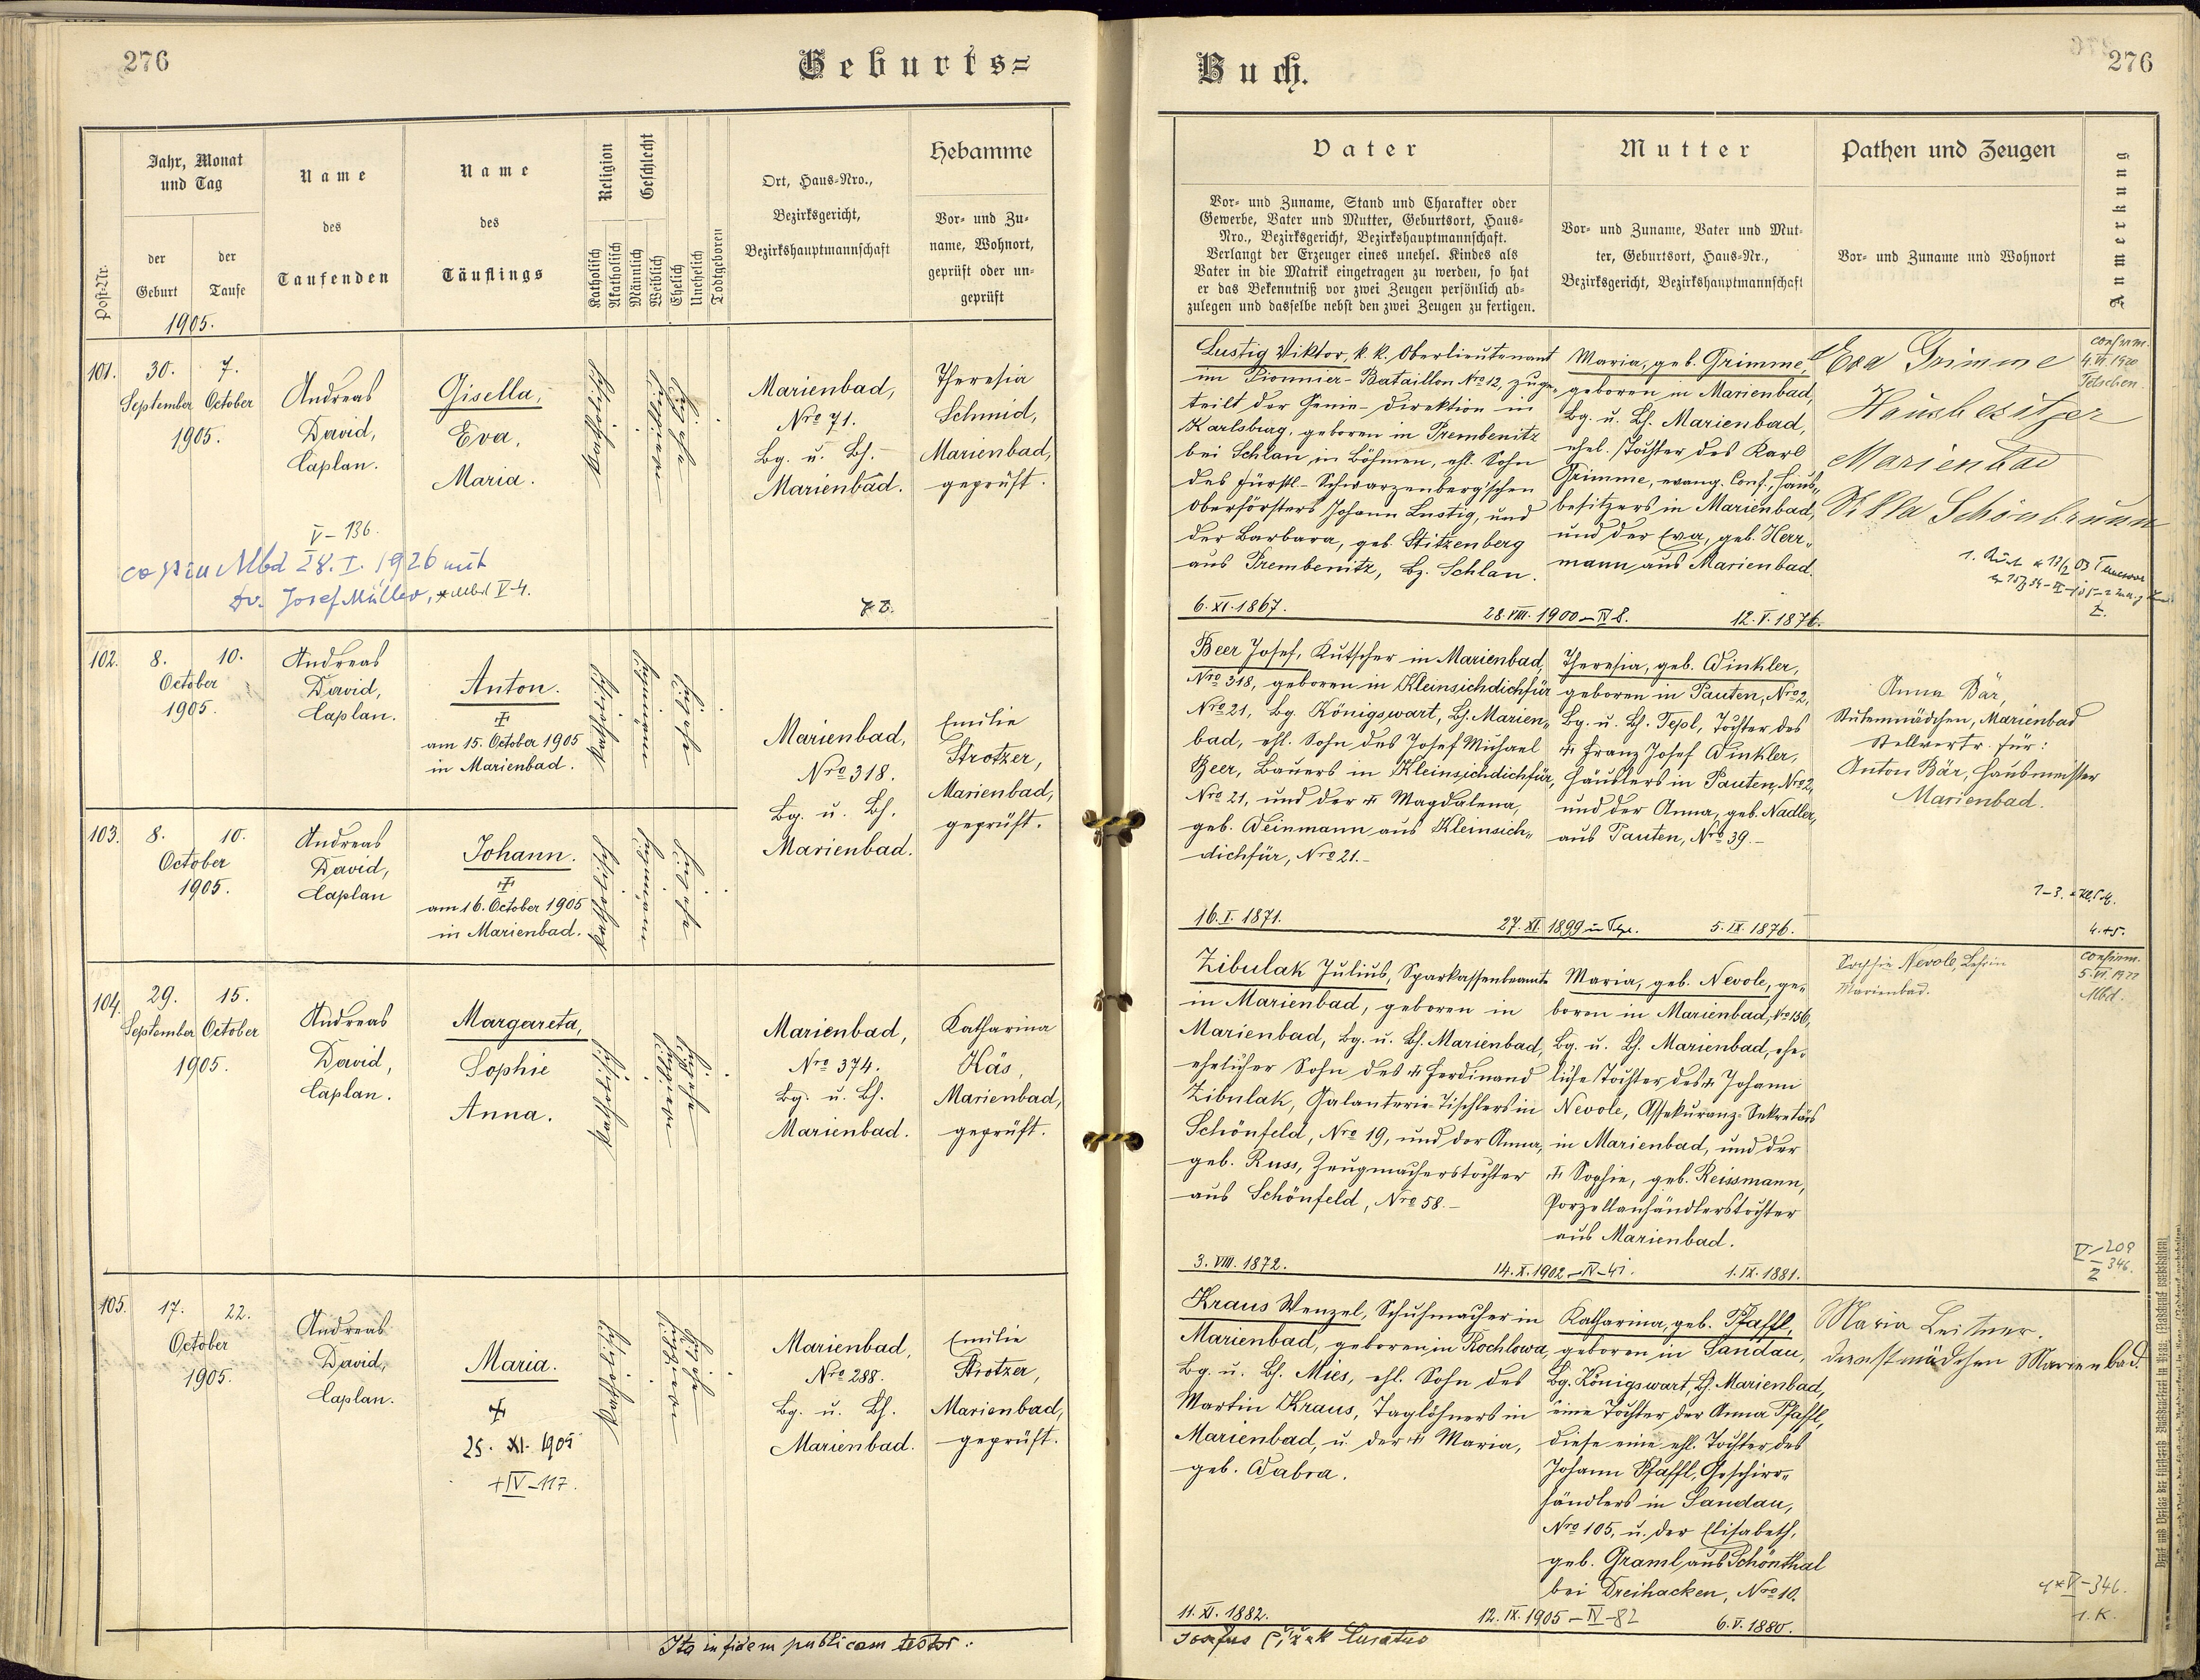 276
Geburts=
Post-Nr.
Jahr, Monat
und Tag
der
Geburt
der
Taufe
1905.
Name
des
Taufenden
Name
des
Täuflings
Religion
Katholisch
Akatholisch
Geschlecht
Männlich
Weiblich
Ehelich
Unehelich
Todtgeboren
Ort, Haus=Nro.,
Bezirksgericht,
Bezirkshauptmannschaft
Hebamme
Vor= und Zu=
name, Wohnort,
geprüft oder un=
geprüft
101.
30.
September
7.
October
1905.
Andreas
David,
Caplan.
Gisella,
Eva,
Maria.
Katholisch
Marienbad,
Nro 71.
Bg. u. Bh.
Marienbad.
Theresia
Schmid,
Marienbad,
geprüft.
V – 136.
cop in Mbd 28. I. 1926 mit
Dr. Josef Müller, * Mbd V-4.
102.
8.
10.
October
1905.
Andreas
David,
Caplan.
Anton.
am 15. October 1905
in Marienbad.
Katholisch
Marienbad,
Nro 318.
Bg. u. Bh.
Marienbad.
Emilie
Strotzer,
Marienbad,
geprüft.
103.
8.
10.
October
1905.
Andreas
David,
Caplan
Johann.
am 16. October 1905
in Marienbad.
Katholisch
104.
29.
September
15.
October
1905.
Andreas
David,
Caplan.
Margareta,
Sophie
Anna.
Katholisch
Marienbad,
Nro 374.
Bg. u. Bh.
Marienbad.
Katharina
Käs,
Marienbad,
geprüft.
105.
17.
22.
October
1905.
Andreas
David,
Caplan.
Maria.
25. XI. 1905
+ IV – 117.
Katholisch
Marienbad,
Nro 288.
Bg. u. Bh.
Marienbad.
Emilie
Strotzer,
Marienbad,
geprüft.
Ita in fidem publicam testor:
Buch.
276
Vater
Vor= und Zuname, Stand und Charakter oder
Gewerbe, Vater und Mutter, Geburtsort, Haus=
Nro., Bezirksgericht, Bezirkshauptmannschaft.
Verlangt der Erzeuger eines unehel. Kindes als
Vater in die Matrik eingetragen zu werden, so hat
er das Bekenntniß vor zwei Zeugen persönlich ab=
zulegen und dasselbe nebst den zwei Zeugen zu fertigen.
Mutter
Vor= und Zuname, Vater und Mut=
ter, Geburtsort, Haus=Nr.,
Bezirksgericht, Bezirkshauptmannschaft
Pathen und Zeugen
Vor= und Zuname und Wohnort
Anmerkung
Lustig Viktor, k. k. Oberlieutenant
im Pionnier-Bataillon Nro 12, zuge-
teilt der Genie-Direktion in
Karlsburg, geboren in Prembenitz
bei Schlan in Böhmen, ehl. Sohn
des fürstl.-Schwarzenberg'schen
Oberförsters Johann Lustig, und
der Barbara, geb. Stitzenberg
aus Prembenitz, Bz. Schlan.
6. XI. 1867.
28. VIII. 1900 – IV 8.
Maria, geb. Grimme,
geboren in Marienbad,
Bg. u. Bh. Marienbad,
ehel. Tochter des Karl
Grimme, evang. Conf., Haus-
besitzers in Marienbad,
und der Eva, geb. Herr-
mann aus Marienbad.
12. V. 1876.
Eva Grimme
Hausbesitzer
Marienbad
Schönbrunn
confirm.
4. VI. 1920
Tetschen.
Beer Josef, Kutscher in Marienbad,
Nro 318, geboren in Kleinsichdichfür
Nro 21, Bg. Königswart, Bh. Marien-
bad, ehl. Sohn des Josef Michael
Beer, Bauers in Kleinsichdichfür,
Nro 21, und der Magdalena,
geb. Weinmann aus Kleinsich-
dichfür, Nro 21.-
16. I. 1871.
27. XI. 1899 in Tepl.
Theresia, geb. Winkler,
geboren in Pauten, Nro 2,
Bg. u. Bh. Tepl, Tochter des
Franz Josef Winkler,
Häuslers in Pauten, Nro 2,
und der Anna, geb. Nadler,
aus Pauten, Nro 39.-
5. IX. 1876.
Anna Bär,
Stubenmädchen, Marienbad
Stellvertr. für:
Anton Bär, Hausmeister
Marienbad.
4. + 5.
Zibulak Julius, Sparkassenbeamte
in Marienbad, geboren in
Marienbad, Bg. u. Bh. Marienbad,
ehelicher Sohn des Ferdinand
Zibulak, Galanterie-Tischlers in
Schönfeld, Nro 19, und der Anna,
geb. Russ, Zeugmacherstochter
aus Schönfeld, Nro 58.-
3. VIII. 1872.
14. X. 1902 – IV – 41.
Maria, geb. Nevole, ge-
boren in Marienbad, No 156,
Bg. u. Bh. Marienbad, ehe-
liche Tochter des Johann
Nevole, Assekuranz-Sekretärs
in Marienbad, und der
Sophie, geb. Reissmann,
Porzellanhändlerstochter
aus Marienbad.
1. IX. 1881.
Sophie Nevole,
Marienbad.
confirm.
5. VI. 1922
Mbd.
V – 209
– 346.
Kraus Wenzel, Schuhmacher in
Marienbad, geboren in Kochlowa,
Bg. u. Bh. Mies, ehl. Sohn des
Martin Kraus, Taglöhners in
Marienbad, u. der Maria,
geb. Wabra.
11. XI. 1882.
12. IX. 1905 – IV – 82
Katharina, geb. Pfaffl,
geboren in Sandau,
Bg. Königswart, Bh. Marienbad,
eine Tochter der Anna Pfaffl,
diese eine ehl. Tochter des
Johann Pfaffl, Geschirr-
händlers in Sandau,
Nro 105, u. der Elisabeth,
geb. Graml, aus Schönthal
bei Dreihacken, Nro 10.
6. V. 1880.
Maria Leitner.
Dienstmädchen Marienbad.
V – 346.
1. K.